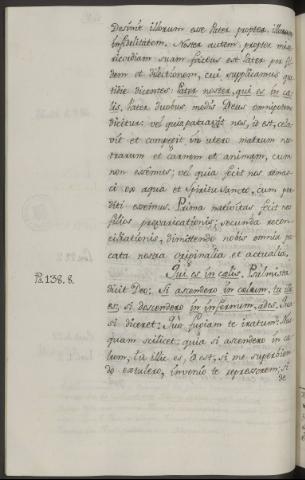 Desinit illorum esse Pater propter illorum
infidelitatem. Noster autem propter mise-
ricordiam suam factus est Pater per fi-
dem et dilectionem, cui supplicamus quo-
tidie dicentes: Pater noster, qui es in cæ-
lis. Pater duobus modis Deus omnipotens
dicitur: vel quia patravit nos, id est, crea-
vit et compegit in utero matrum nos-
trarum et carnem et animam, cum
non essemus; vel quia fecit nos renas-
ci ex aqua et Spiritu Sancto, cum per-
diti essemus. Prima nativitas fecit nos
filios prævaricationis; secunda recon-
ciliationis, dimittendo nobis omnia pec-
cata nostra originalia et actualia.
Qui es in cælis. Psalmista
dicit Deo: Si ascendero in cælum, tu illic
Ps. 138. 8.
es; si descendero in infernum, ades. Qua-
si diceret: Quo fugiam te iratum? Nus-
quam scilicet: quia si ascendero in cæ-
lum, tu illic es, id est, si me superbien-
do extulero, invenio te repressorem; si
de